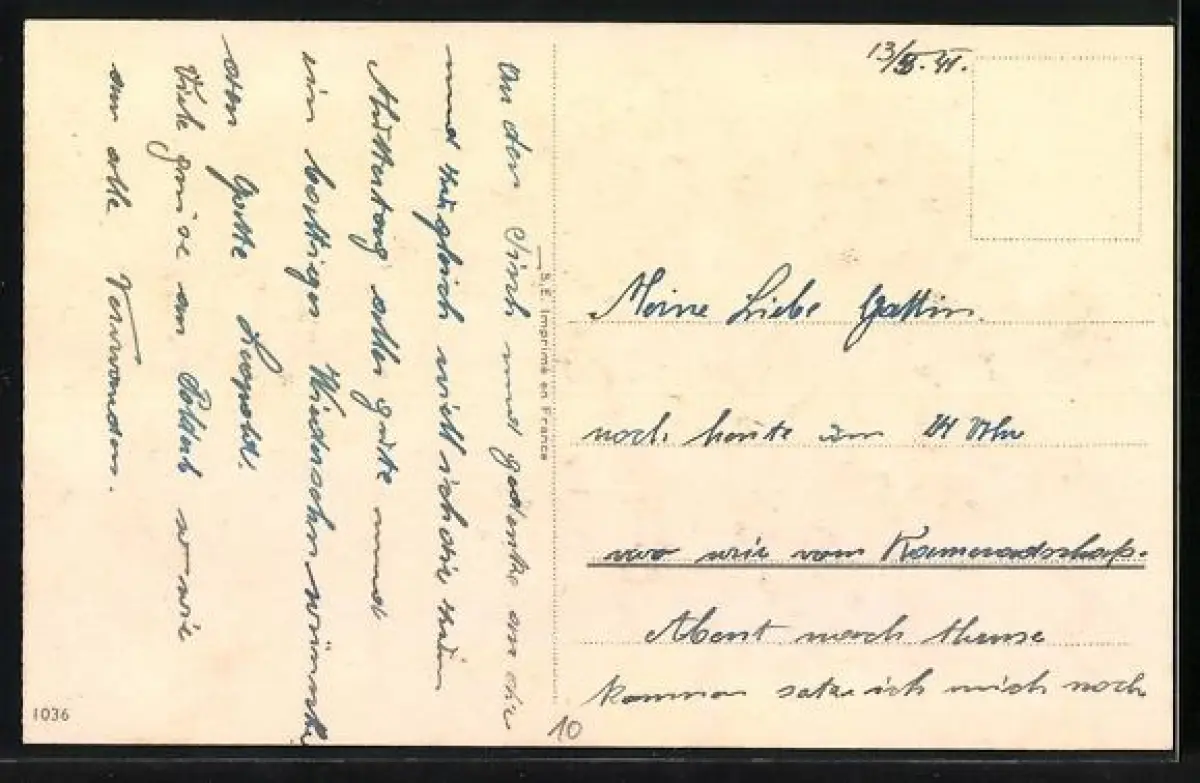 13/5.41.
Meine Liebe Gattin.
noch heute um 24 Uhr
wo wir vom Kameradschaf-
Abent nach Hause
kommen setze ich mich noch
An den Tisch und gedenke an dir
und zugleich will ich dir zum
Muttertag alles gute und
ein baldiges Wiedersehn wünscht
dein Gatte Leopold.
Viele grüse an Poldi sowie
an alle Verwanden.
S.E. Imprimé en France
1036
10